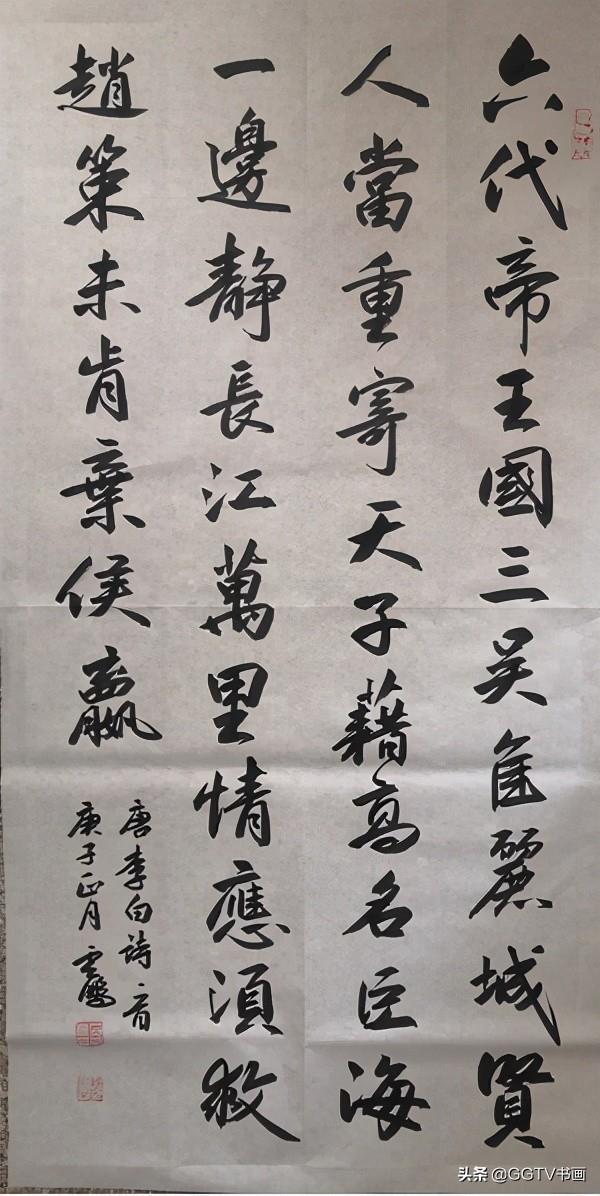 六代帝王國三吴佳麗城賢
人當重寄天子藉高名巨海
一邊静長江萬里情應須救
趙策未肯棄侯嬴
唐李白詩首
庚子正月
头条 @GGTV书画